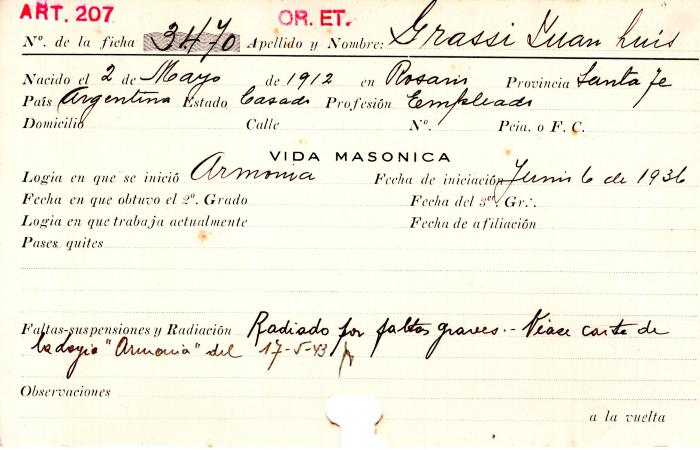 ART. 207 OR. ET.
Nº. de la ficha 3470 Apellido y Nombre: Grassi Juan Luis
Nacido el 2 de Mayo de 1912 en Rosario Provincia Santa Fe
País Argentina Estado Casado Profesión Empleado
Domicilio Calle Nº. Pcia. o F. C.
VIDA MASONICA
Logia en que se inició Armonia Fecha de iniciación Junio 6 de 1936
Fecha en que obtuvo el 2º. Grado Fecha del 3er. Gr∴
Logia en que trabaja actualmente Fecha de afiliación
Pases quites
Faltas-suspensiones y Radiación Radiado por faltas graves.- Véase carta de
la Logia "Armonia" del 17-5-43
Observaciones
a la vuelta